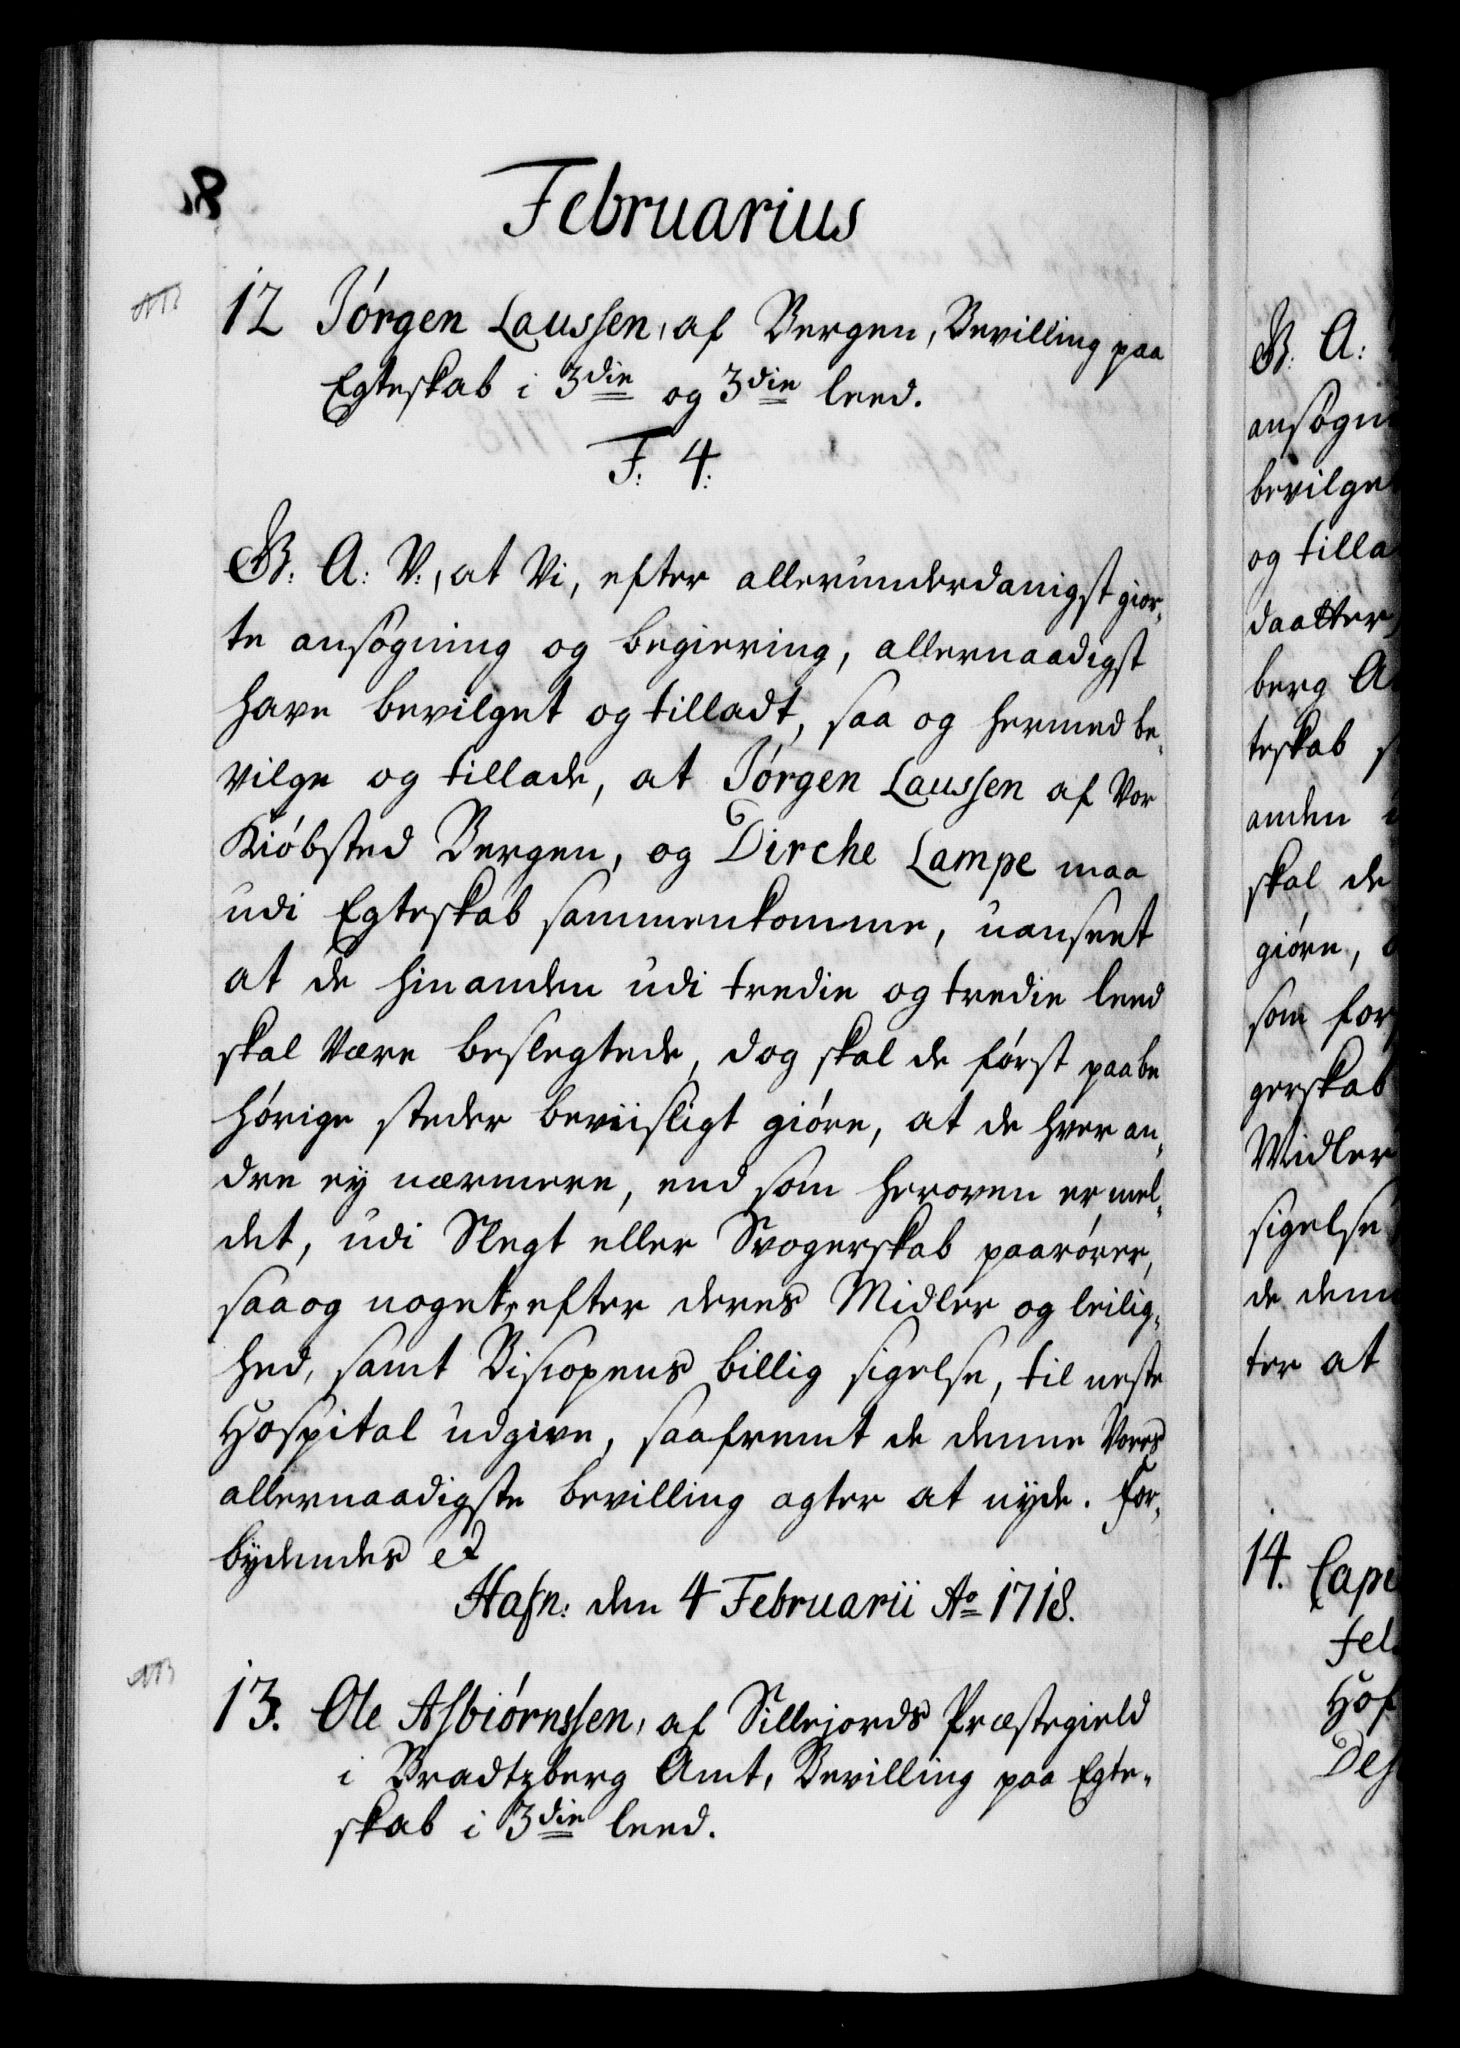 8
Februarius
12 Jórgen Laussen, af Bergen, Bevilling paa
Egteskab i 3die og 3die leed.
F: 4:
G: A: V:, at Vi, efter allerunderdanigst gior,
te ansøgning og begiering, allernaadigst
have bevilget og tilladt, saa og hermed be,
vilge og tillade, at Jórgen Laussen af Vor
Kióbsted Bergen, og Dirche Lampe maa
udi Egteskab sammenkomme, uanseet
at de hinanden udi tredie og tredie leed
skal være beslegtede, dog skal de fórst paa be
hórige steder beviisligt gióre, at de hver an,
dre ey nærmere, end som heroven er mel,
det, udi Slegt eller Svogerskab paarórer,
saa og noget, efter deres Midler og leilig,
hed, samt Biscopens billig sigelse, til neste
Hospital udgive, saafremt de denne Vores
allernaadigste bevilling agter at nyde. For,
bydendes etc
Hafn: den 4 Februarii Ao 1718.
13. Ole Asbiórnssen, af Sillejords Præstegield
i Bradtzberg Amt, Bevilling paa Egte,
skab i 3die leed.
A:
ansøgni
bevilge
og tilla
daatter
berg A
teskab
anden
skal de
gióre,
som for
gerskab
Midler
sigelse
de denn
ter at
14. Cap
fel
Hof